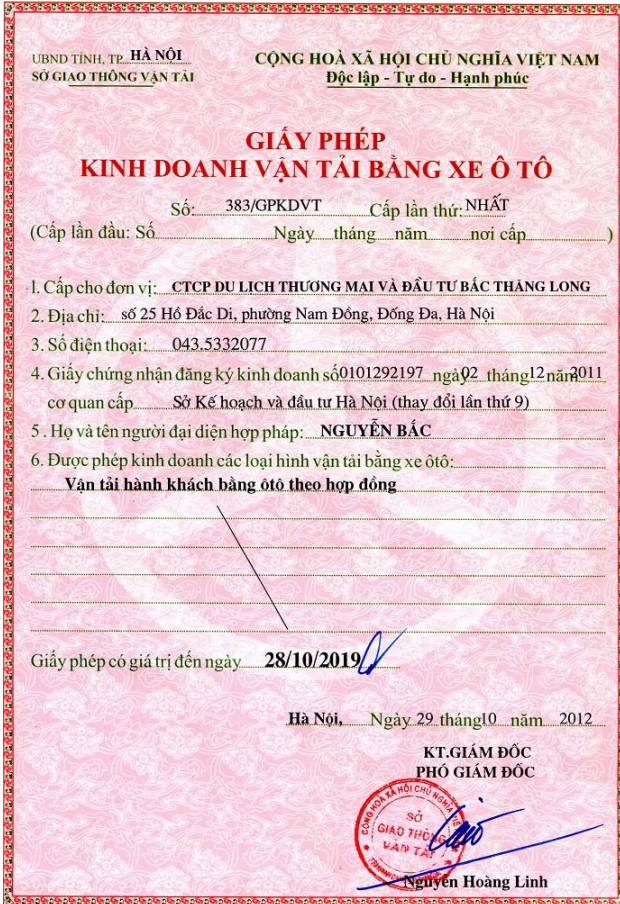 UBND TỈNH, TP. HÀ NỘI
SỞ GIAO THÔNG VẬN TẢI
CỘNG HOÀ XÃ HỘI CHỦ NGHĨA VIỆT NAM
Độc lập - Tự do - Hạnh phúc
GIẤY PHÉP
KINH DOANH VẬN TẢI BẰNG XE Ô TÔ
Số: 383/GPKDVT Cấp lần thứ: NHẤT
(Cấp lần đầu: Số Ngày tháng năm nơi cấp )
1. Cấp cho đơn vị: CTCP DU LỊCH THƯƠNG MẠI VÀ ĐẦU TƯ BẮC THĂNG LONG
2. Địa chỉ: số 25 Hồ Đắc Di, phường Nam Đồng, Đống Đa, Hà Nội
3. Số điện thoại: 043.5332077
4. Giấy chứng nhận đăng ký kinh doanh số 0101292197 ngày 02 tháng 12 năm 2011
cơ quan cấp Sở Kế hoạch và đầu tư Hà Nội (thay đổi lần thứ 9)
5. Họ và tên người đại diện hợp pháp: NGUYỄN BẮC
6. Được phép kinh doanh các loại hình vận tải bằng xe ôtô:
Vận tải hành khách bằng ôtô theo hợp đồng
Giấy phép có giá trị đến ngày 28/10/2019
Hà Nội, Ngày 29 tháng 10 năm 2012
KT.GIÁM ĐỐC
PHÓ GIÁM ĐỐC
SỞ
GIAO THÔNG
VẬN TẢI
Nguyễn Hoàng Linh